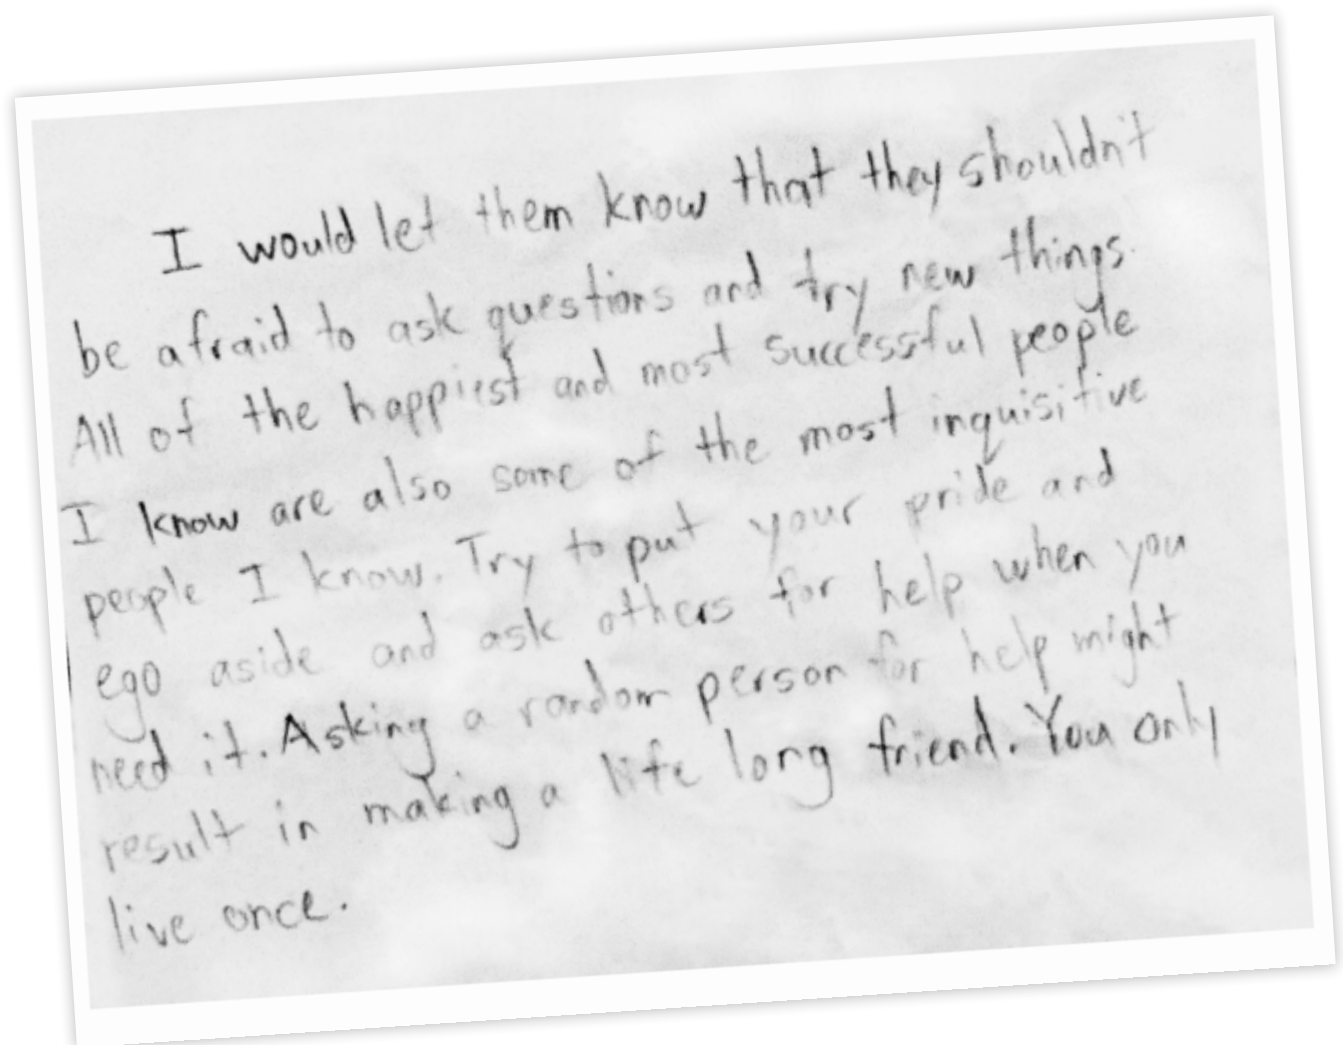 I would let them know that they shouldn't
be afraid to ask questions and try new things.
All of the happiest and most successful people
I know are also some of the most inquisitive
people I know. Try to put your pride and
ego aside and ask others for help when you
need it. Asking a random person for help might
result in making a life long friend. You only
live once.